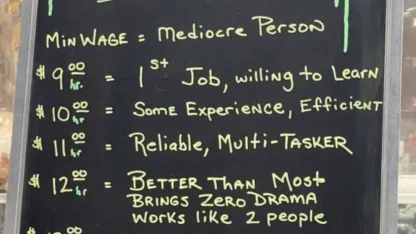 Min Wage = Mediocre Person
$9.00 hr. = 1st Job, willing to Learn
$10.00 hr = Some Experience, Efficient
$11.00 hr = Reliable, Multi-Tasker
$12.00 hr = Better Than Most
Brings Zero Drama
Works like 2 people